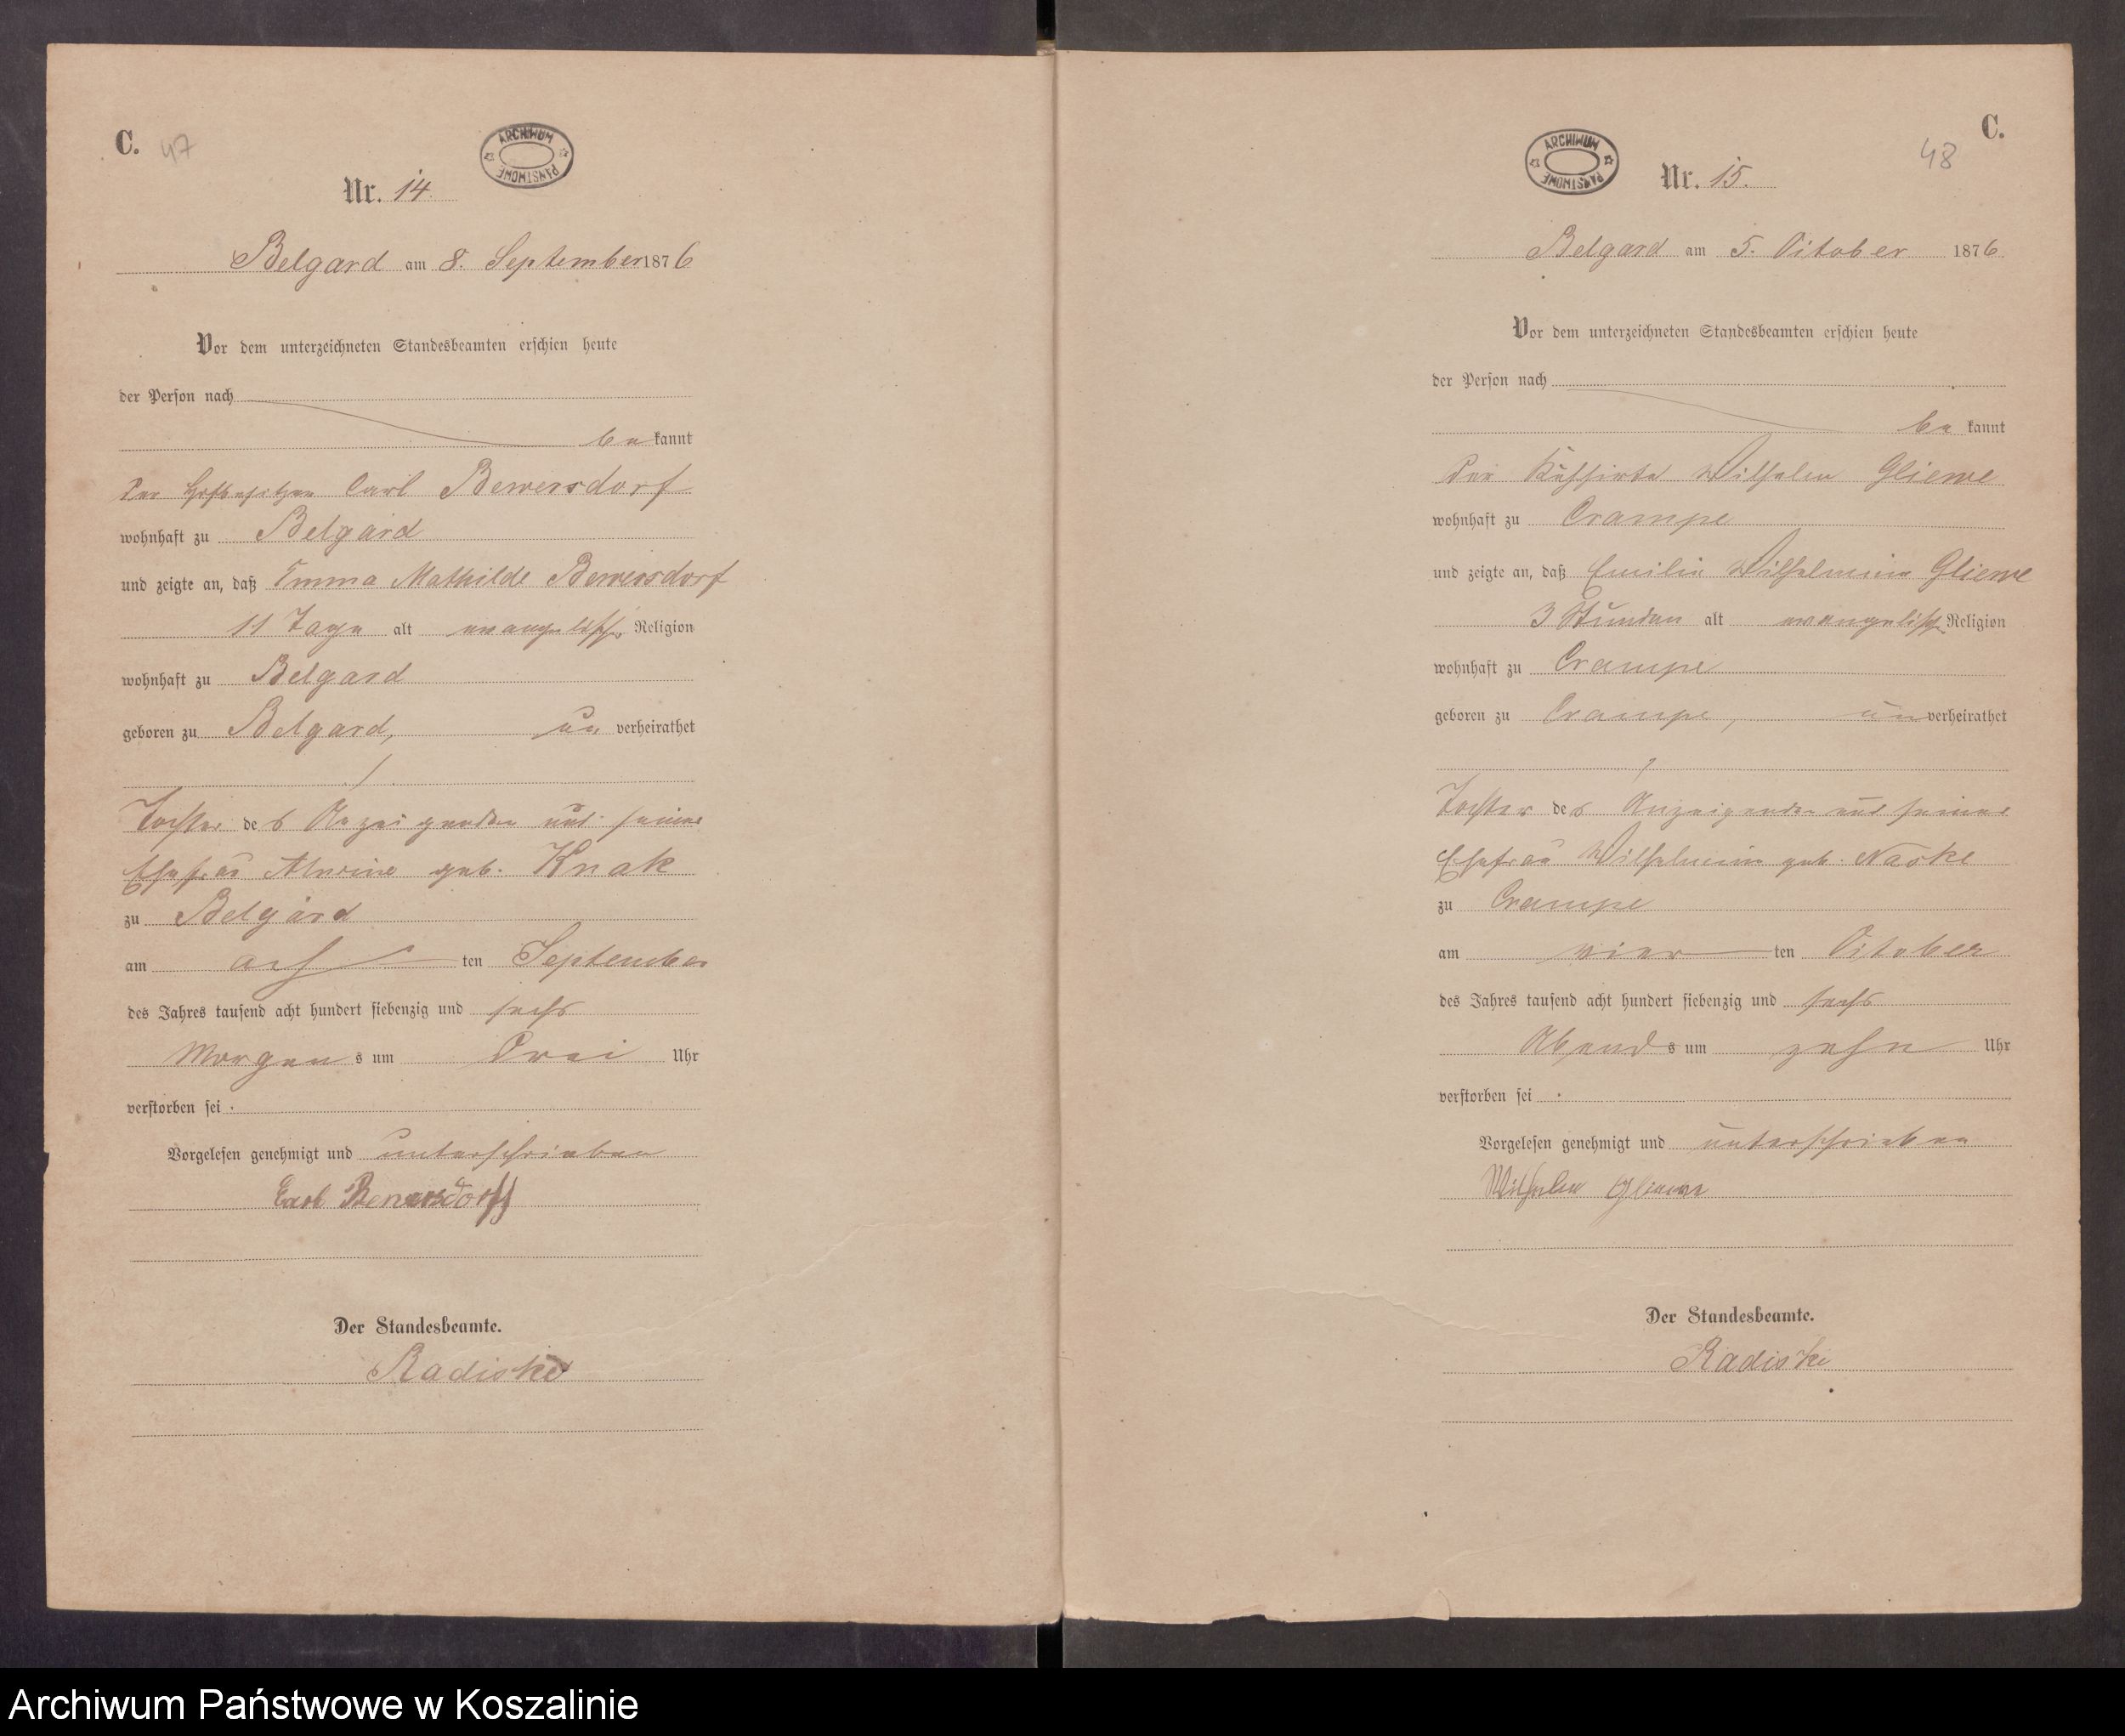 C. 47
ARCHIWUM PAŃSTWOWE
Nr. 14.
Belgard am 8. September 1876
Vor dem unterzeichneten Standesbeamten erschien heute
der Person nach
be kannt
Der Hofbesitzer Carl Bewersdorf
wohnhaft zu Belgard
und zeigte an, daß Emma Mathilde Bewersdorf
11 Tage alt evangelischer Religion
wohnhaft zu Belgard
geboren zu Belgard, un verheirathet
Tochter des Anzeigenden und seiner
Ehefrau Alwine geb. Knak
zu Belgard
am ach ten September
des Jahres tausend acht hundert siebenzig und sechs
Morgen s um Drei Uhr
verstorben sei.
Vorgelesen genehmigt und unterschrieben
Carl Bewersdorff
Der Standesbeamte.
Radiske
C.
48
ARCHIWUM PAŃSTWOWE
Nr. 15.
Belgard am 5. October 1876
Vor dem unterzeichneten Standesbeamten erschien heute
der Person nach
be kannt
Der Kuhhirte Wilhelm Gliewe
wohnhaft zu Crampe
und zeigte an, daß Emilie Wilhelmine Gliewe
3 Stunden alt evangelisch Religion
wohnhaft zu Crampe
geboren zu Crampe, un verheirathet
Tochter des Anzeigenden und seiner
Ehefrau Wilhelmine geb.
zu Crampe
am vier ten October
des Jahres tausend acht hundert siebenzig und sechs
Abend s um zehn Uhr
verstorben sei.
Vorgelesen genehmigt und unterschrieben
Wilhelm Gliewe
Der Standesbeamte.
Radiske
Archiwum Państwowe w Koszalinie